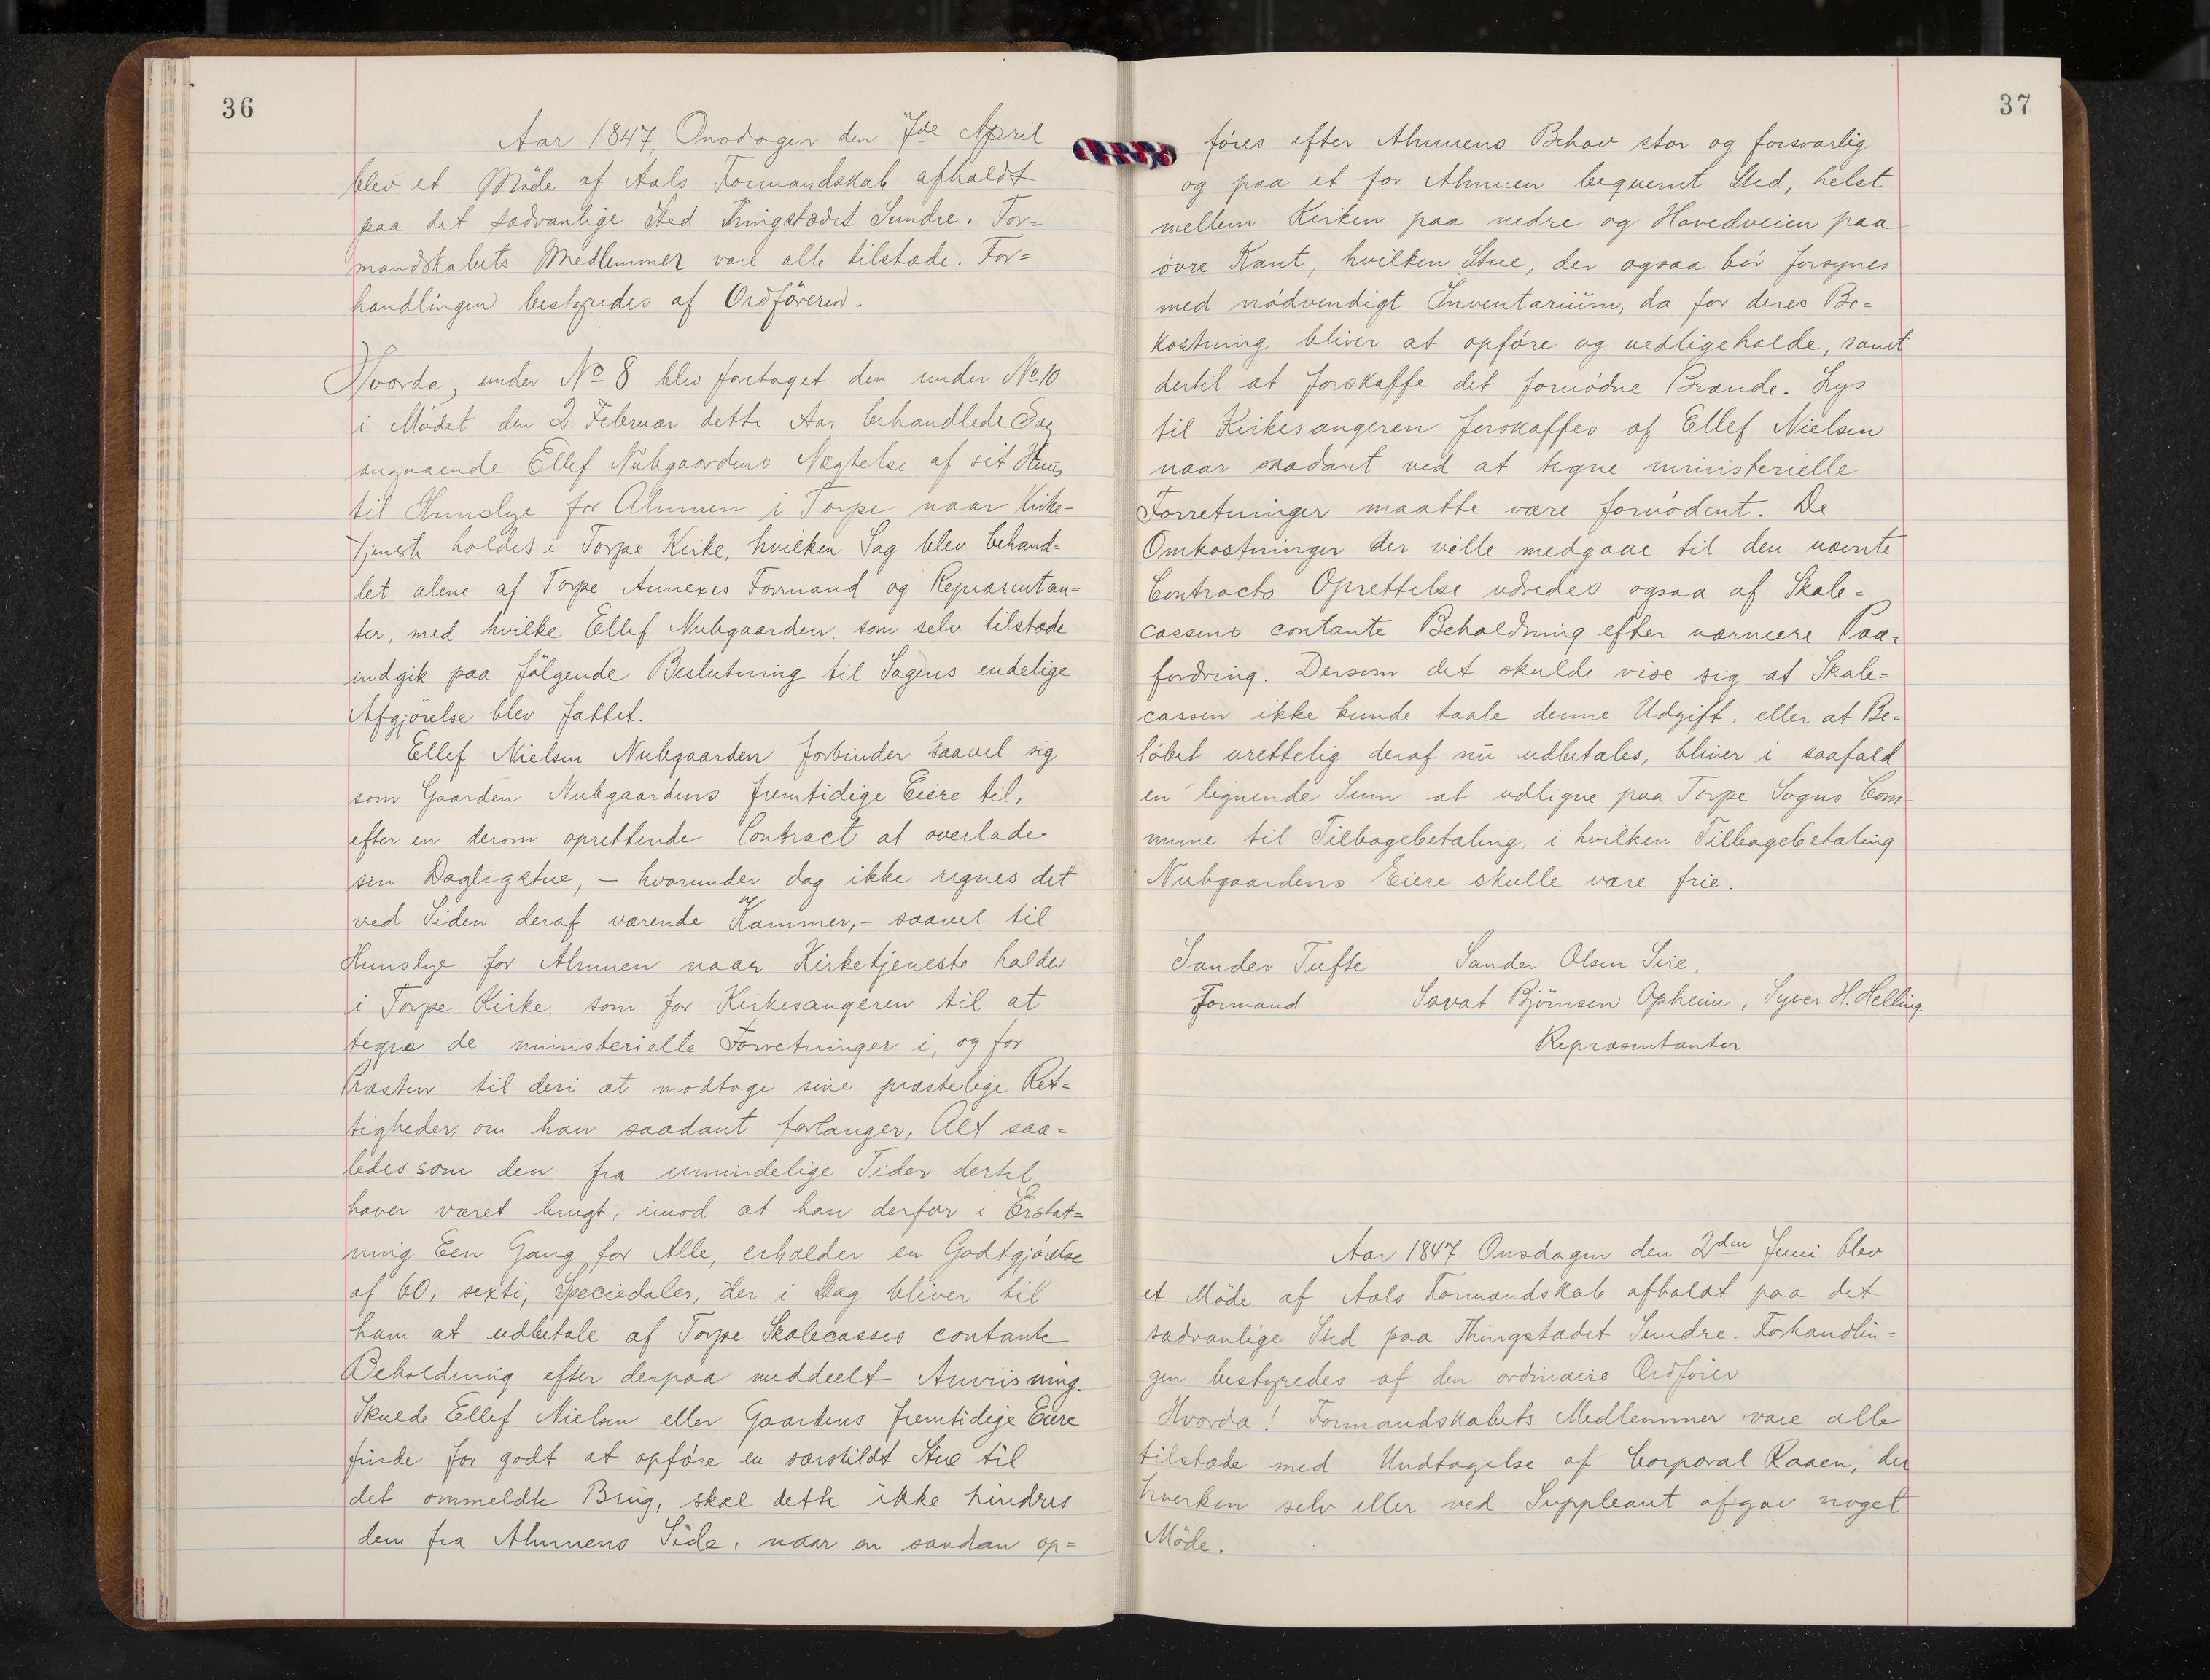 36
Aar 1847, Onsdagen den 7de April
blev et Möde af Aals Formandskab afholdt
paa det sædvanlige Sted Thingstædet Sundre. For=
mandskabets Medlemmer vare alle tilstæde. For=
handlingen bestyredes af Ordföreren.
Hvorda, under No 8 blev foretaget den under No 10
i Mödet den 2. Februar dette Aar behandlede Sag
angaaende Ellef Nubgaardens Nægtelse af sit Huus
til Huuslye for Almuen i Torpe naar Kirke-
tjeneste holdes i Torpe Kirke, hvilken Sag blev behand-
let alene af Torpe Annexes Formand og Repræsentan=
ter, med hvilke Ellef Nubgaarden, som selv tilstæde
indgik paa fölgende Beslutning til Sagens endelige
Afgjörelse blev fattet.
Ellef Nielsen Nubgaarden forbinder saavel sig
som Gaarden Nubgaardens fremtidige Eiere til,
efter en derom oprettende Contract at overlade
sin Dagligstue, – hvorunder dog ikke regnes det
ved Siden deraf værende Kammer, – saavel til
Huuslye for Almuen naar Kirketjeneste holdes
i Torpe Kirke, som for Kirkesangeren til at
tegne de ministerielle Forretninger i, og for
Præsten til deri at modtage sine præstelige Ret=
tigheder, om han saadant forlanger, Alt saa=
ledes som den fra umindelige Tider dertil
haver været brugt, imod at han derfor i Erstat=
ning Een Gang for Alle, erholder en Godtgjörelse
af 60, sexti, Speciedaler, der i Dag bliver til
ham at udbetale af Torpe Skolecasses contante
Beholdning efter derpaa meddeelt Anviisning.
Skulde Ellef Nielsen eller Gaardens fremtidige Eiere
finde for godt at opföre en særskildt Stue til
det ommeldte Brug, skal dette ikke hindres
dem fra Almuens Side, naar en saadan op=
37
föres efter Almuens Behov stor og forsvarlig
og paa et for Almuen bequemt Sted, helst
mellem Kirken paa nedre og Hovedveien paa
övre Kant, hvilken Stue, der ogsaa bör forsynes
med nödvendigt Inventarium, da for deres Be=
kostning bliver at opföre og vedligeholde, samt
dertil at forskaffe det fornödne Brænde. Lys
til Kirkesangeren forskaffes af Ellef Nielsen
naar saadant ved at tegne ministerielle
Forretninger maatte være fornödent. De
Omkostninger der ville medgaae til den nævnte
Contracts Oprettelse udredes ogsaa af Skole=
cassens contante Beholdning efter nærmere Paa-
fordring. Dersom det skulde vise sig at Skole=
cassen ikke kunde taale denne Udgift, eller at Be=
löbet urettelig deraf nu udbetales, bliver i saafald
en lignende Sum at udligne paa Torpe Sogns Com-
mune til Tilbagebetaling, i hvilken Tilbagebetaling
Nubgaardens Eiere skulle være frie.
Sander Tufte Sander Olsen Sire,
Formand Savat Björnsen Opheim, Syver H. Helling.
Repræsentanter
Aar 1847 Onsdagen den 2den Juni blev
et Möde af Aals Formandskab afholdt paa det
sædvanlige Sted paa Thingstædet Sundre. Forhandlin=
gen bestyredes af den ordinaire Ordförer
Hvorda! Formandskabets Medlemmer vare alle
tilstæde med Undtagelse af Corporal Raaen, der
hverken selv eller ved Suppleant afgav noget
Möde.